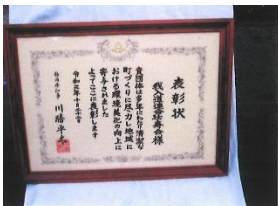 表彰状
我入道連合寿会様
貴団体は多年にわたり清潔な
町づくりに尽力し地域に
おける環境美化の向上に
寄与されました
よってここに表彰します
令和三年十月二十
静岡県知事 川勝平太